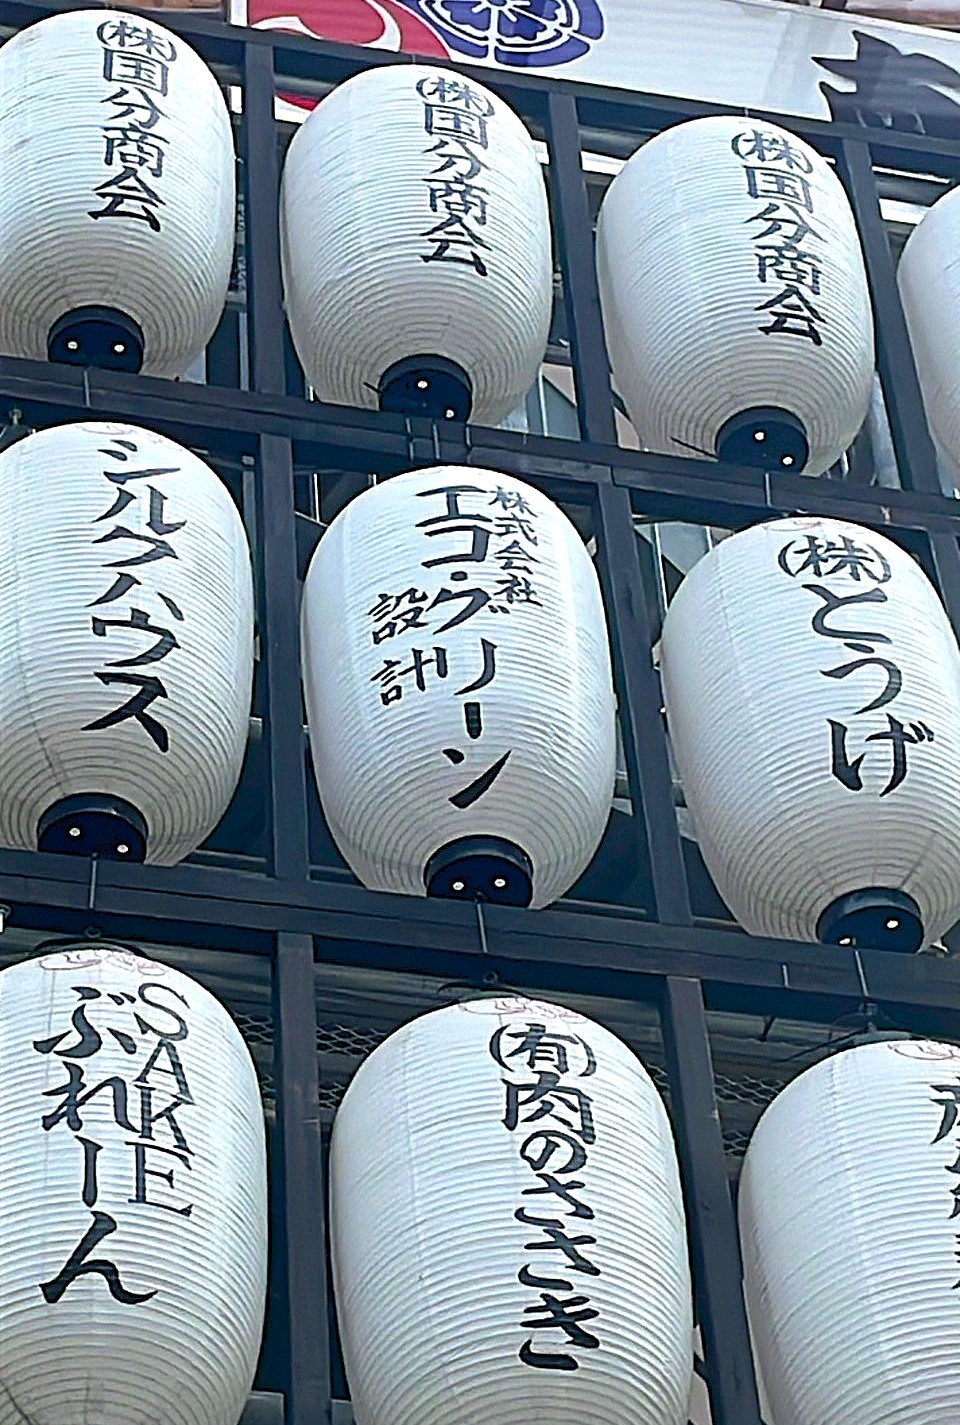 (株)国分商会
(株)国分商会
(株)国分商会
シルクハウス
株式会社
エコ・グリーン
設計
(株)とうげ
SAKE
ぶれーん
(有)肉のささき